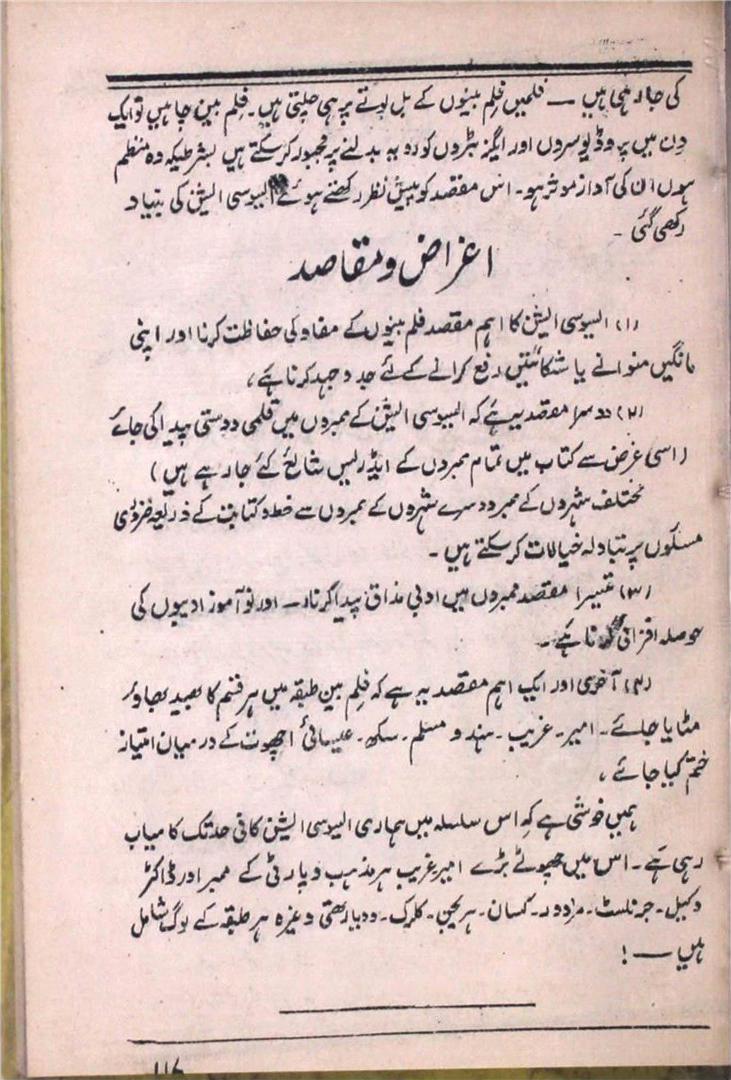 کی جا رہی ہیں — فلمیں فلم بینوں کے بل بوتے پر ہی چلتی ہیں۔ فلم بین چاہیں تو ایک
دن میں پروڈیوسروں اور ایگزبٹروں کو رویہ بدلنے پر مجبور کر سکتے ہیں بشرطیکہ وہ منظم
ہوں ان کی آواز موثر ہو۔ اس مقصد کو پیش نظر رکھتے ہوئے ایسوسی ایشن کی بنیاد
رکھی گئی۔
اغراض و مقاصد
(۱) ایسوسی ایشن کا اہم مقصد فلم بینوں کے مفاد کی حفاظت کرنا اور اپنی
مانگیں منوانے یا شکائتیں رفع کرانے کے لئے جدوجہد کرنا ہے،
(۲) دوسرا مقصد یہ ہے کہ ایسوسی ایشن کے ممبروں میں قلمی دوستی پیدا کی جائے
(اسی غرض سے کتاب میں تمام ممبروں کے ایڈریس شائع کئے جا رہے ہیں)
مختلف شہروں کے ممبر دوسرے شہروں کے ممبروں سے خط و کتابت کے ذریعہ ضروری
مسئلوں پر تبادلہ خیالات کر سکتے ہیں۔
(۳) تیسرا مقصد ممبروں میں ادبی مذاق پیدا کرنا۔ اور نو آموز ادیبوں کی
حوصلہ افزائی کرنا ہے۔
(۴) آخری اور ایک اہم مقصد یہ ہے کہ فلم بین طبقہ میں ہر قسم کا بھید بھاؤ
مٹایا جائے۔ امیر۔ غریب۔ ہندو مسلم۔ سکھ۔ عیسائی اچھوت کے درمیان امتیاز
ختم کیا جائے،
ہمیں خوشی ہے کہ اس سلسلہ میں ہماری ایسوسی ایشن کافی حد تک کامیاب
رہی ہے۔ اس میں چھوٹے بڑے امیر غریب ہر مذہب و پارٹی کے ممبر اور ڈاکٹر
وکیل۔ جرنلسٹ۔ مزدور۔ کسان۔ ہریجن۔ کلرک۔ ودیارتھی وغیرہ ہر طبقہ کے لوگ شامل
ہیں —!